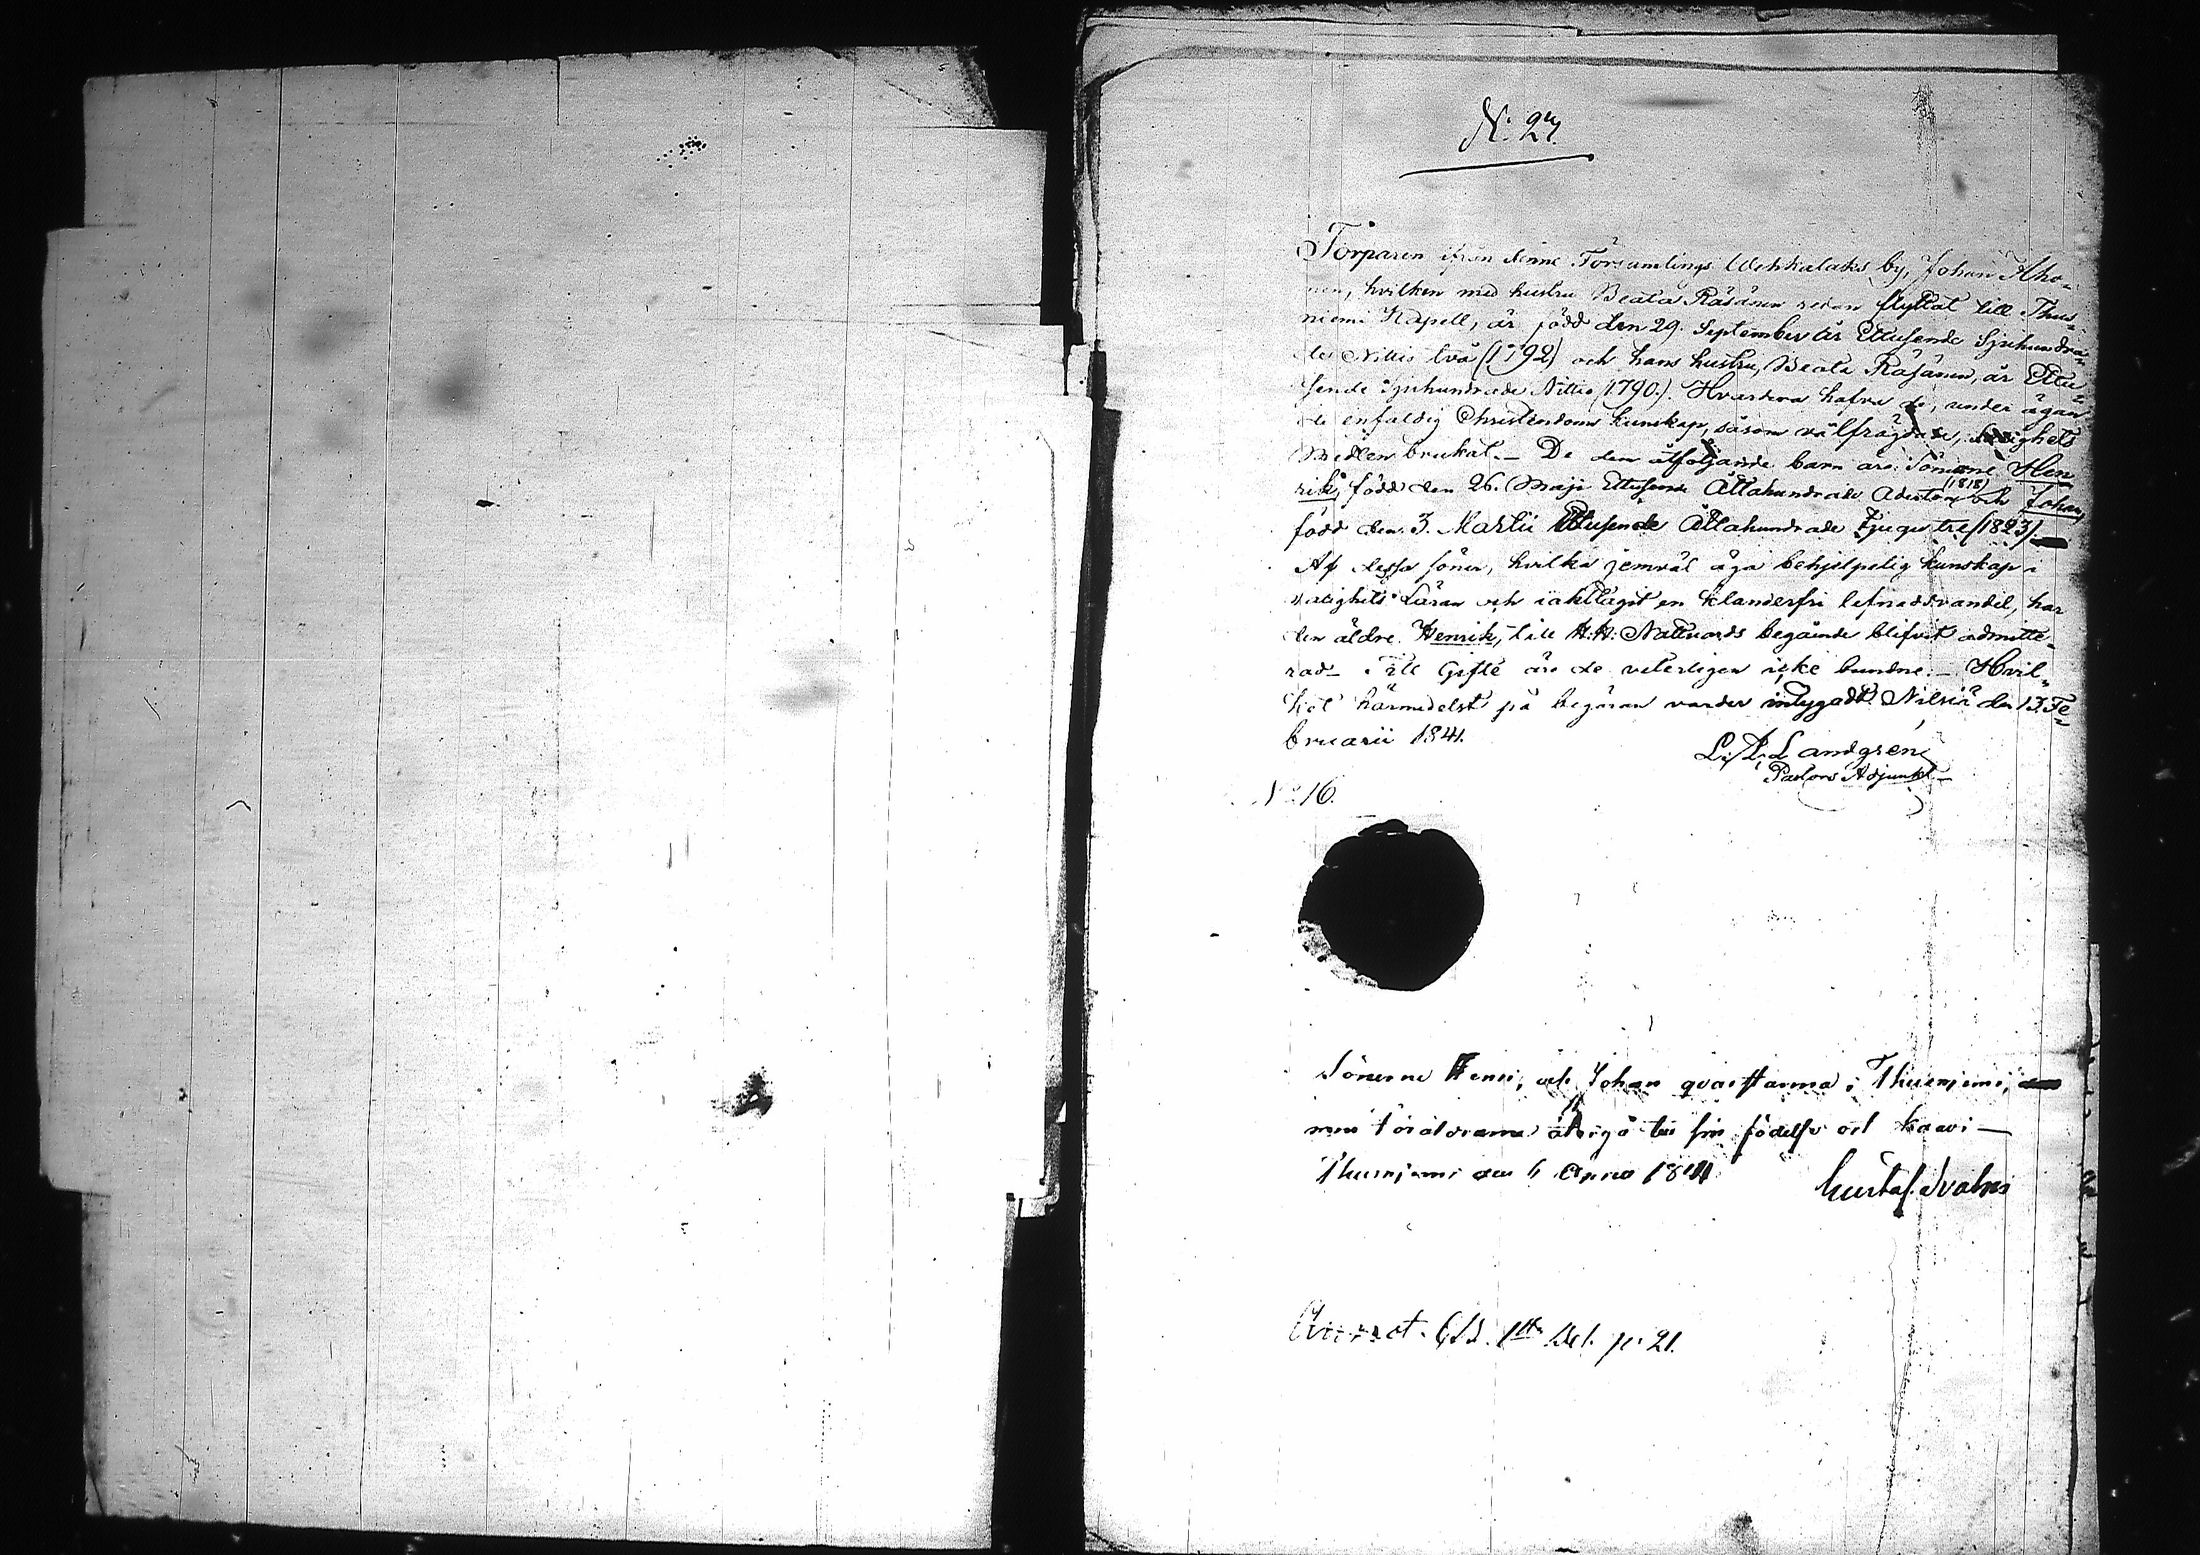 N: 27.
Torparen ifrån denne Församlings Wehkalaks by, Johan Aho-
nen, hvilken med hustru Beata Räsänen redan flyttat till Thus-
niemi Kapell, är född den 29. September år Ettusende Sjuhundra-
de Nittio två (1792) och hans hustru, Beata Räsänen, år Ettu-
sende Sjuhundrade Nittio (1790.). Hvardera hafva de, under ägan-
de enfaldig Christendoms kunskap, såsom välfrägdade, Salighets
Medlen brukat. _ De dem åtföljande barn äro: Sönerne Hen-
rik, född den 26. Maji Ettusende Åttahundrade Aderton (1818) och Johan,
född den 3. Martii Ettusende Åttahundrade Tjugu tre (1823)
Af dessa söner, hvilka jemväl äga behjelpelig kunskap i
salighets Läran och iakttagit en klanderfri lefnadsvandel, har
den äldre, Henrik, till H: H: Nattvards begående blifvit admitte-
rad _ Till Gifte äro de veterligen icke bundne. _ Hvil-
ket härmedelst på begäran varder intygadt. Nilsiä den 13. Fe-
bruarii 1841.
L. A. Landgrén
Pastors Adjunkt
No 16.
Sönerne Henr; och Johan qvarstanna i Thusnjemi,
men föräldrarne återgå till sin födelse ort Kaavi _
Thusnjemi den 4 1841
Gustaf
Annot. C.B. 1sta Del. p. 21.